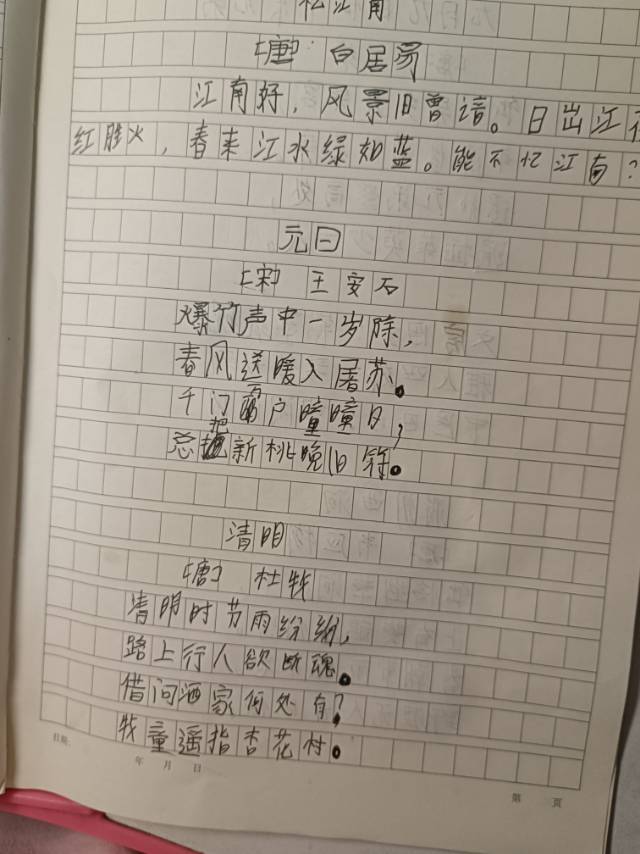 江南
[唐] 白居易
江南好，风景旧曾谙。日出江
红胜火，春来江水绿如蓝。能不忆江南？
元日
[宋] 王安石
爆竹声中一岁除，
春风送暖入屠苏。
千门万户瞳瞳日，
总把新桃晚旧符。
清明
[唐] 杜牧
清明时节雨纷纷，
路上行人欲断魂。
借问酒家何处有？
牧童遥指杏花村。
日期: 年 月 日
第 页